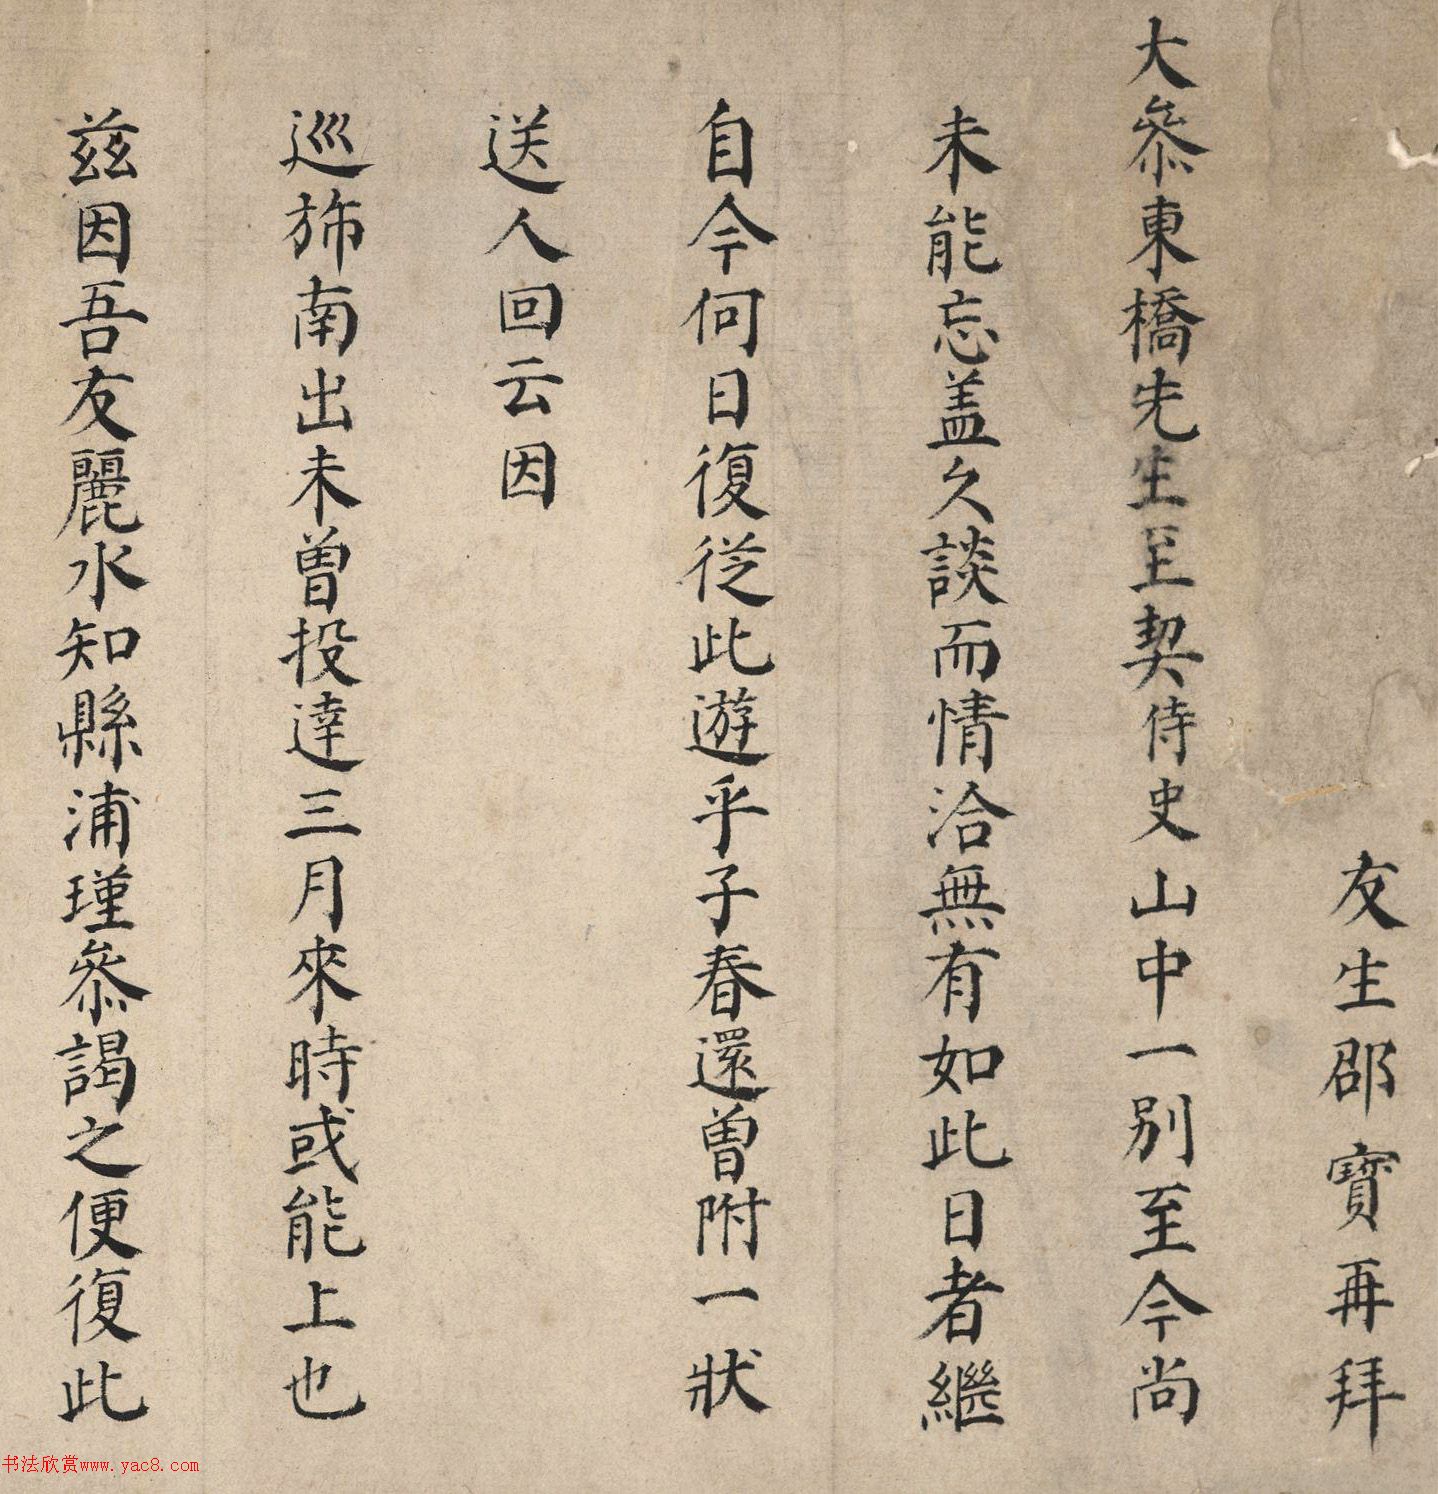 友生邵寶再拜
大參東橋先生至契侍史山中一別至今尚
未能忘盖久談而情洽無有如此日者繼
自今何日復從此遊乎子春還曾附一狀
送人回云因
巡斾南出未曾投達三月來時或能上也
茲因吾友麗水知縣浦瑾參謁之便復此
书法欣赏www.yac8.com